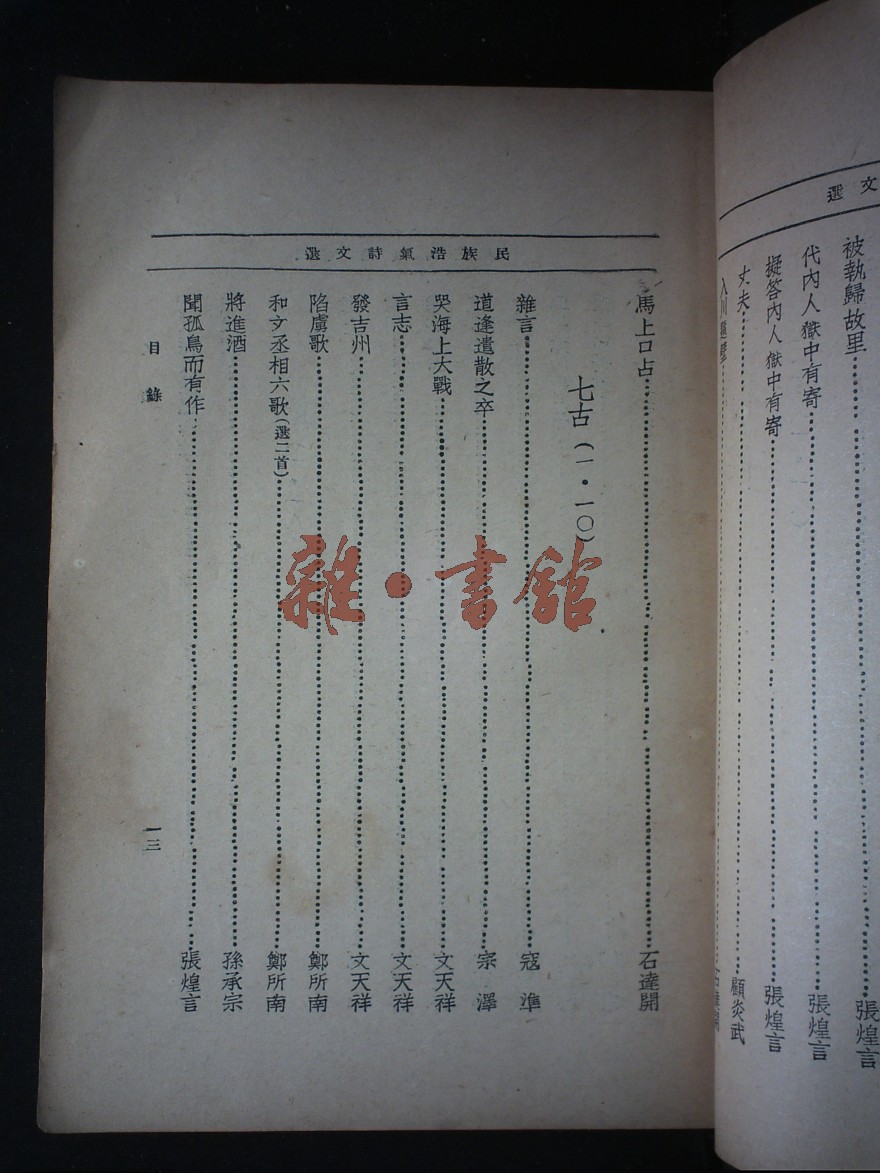 選文
被執歸故里……張煌言
代內人獄中有寄……張煌言
擬答內人獄中有寄……張煌言
丈夫……顧炎武
民族浩氣詩文選
馬上口占……石達開
七古（一·一〇）
雜言……寇準
道逢遣散之卒……宗澤
哭海上大戰……文天祥
言志……文天祥
發吉州……文天祥
陷虜歌……鄭所南
和文丞相六歌（選二首）……鄭所南
將進酒……孫承宗
聞孤鳥而有作……張煌言
目錄
一三
雜·書館